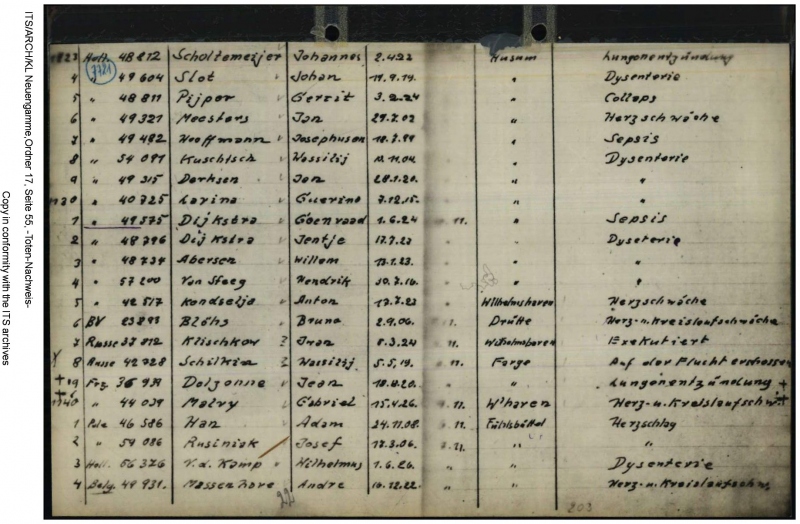 ITS/ARCH/KL Neuengamme,Ordner 17, Seite 55, -Toten-Nachweis-
Copy in conformity with the ITS archives
Holl. 48 812 Scholtemeijer Johannes 2.4.23 Husum Lungenentzündung
7721
4 " 49 604 Slot Johan 11.9.14. " Dysenterie
5 " 48 811 Pijper Gerrit 3.2.24 " Collaps
6 " 49 321 Meesters Jan 29.7.02 " Herzschwäche
7 " 49 482 Josephus " Sepsis
8 " 54 091 Kuschtsch Wassilij 11.11.04 " Dysenterie
9 " 49 315 Derksen Jan 28.1.20. " "
" 40 725 Larina Guerino 7.12.15. " "
1 " 49 575 Dijkstra Coenraad 1.6.24 " 11. " Sepsis
2 " 48 796 Dijkstra Jentje 17.7.23 " " Dyseterie
3 " 48 734 Abersen Willem 13.1.23. " " "
4 " 57 200 Van Steeg Hendrik 30.7.16. " " "
5 " 42 517 Anton 17.7.23 " Wilhelmshaven Herzschwäche
6 BV Blöhs Bruno 2.9.06. 11. Drütte Herz-u.Kreislaufschwäche
7 Russe 37 012 Klischkow ? Iwan 8.3.24 11. Wilhelmshaven Exekutiert
8 Russe 42 728 Schilkin ? Wassilij 5.5.19. 11. Farge Auf der Flucht erschossen
Frz. Dolzonne Jean 18.8.20. " " Lungenentzündung
" 44 039 Malry Gabriel 15.4.26. " 11. W'haven Herz-u.Kreislaufschw.
1 Pole 46 586 Han Adam 24.11.08. 11. Fuhlsbüttel Herzschlag
2 " 54 086 Rusiniak Josef 17.3.06. " "
3 Holl. 56 376 V.d. Kamp Wilhelmus 1.6.26. " " Dysenterie
4 Belg. 49 931. Andre 16.12.22. " " Herz-u.Kreislaufschw.
203